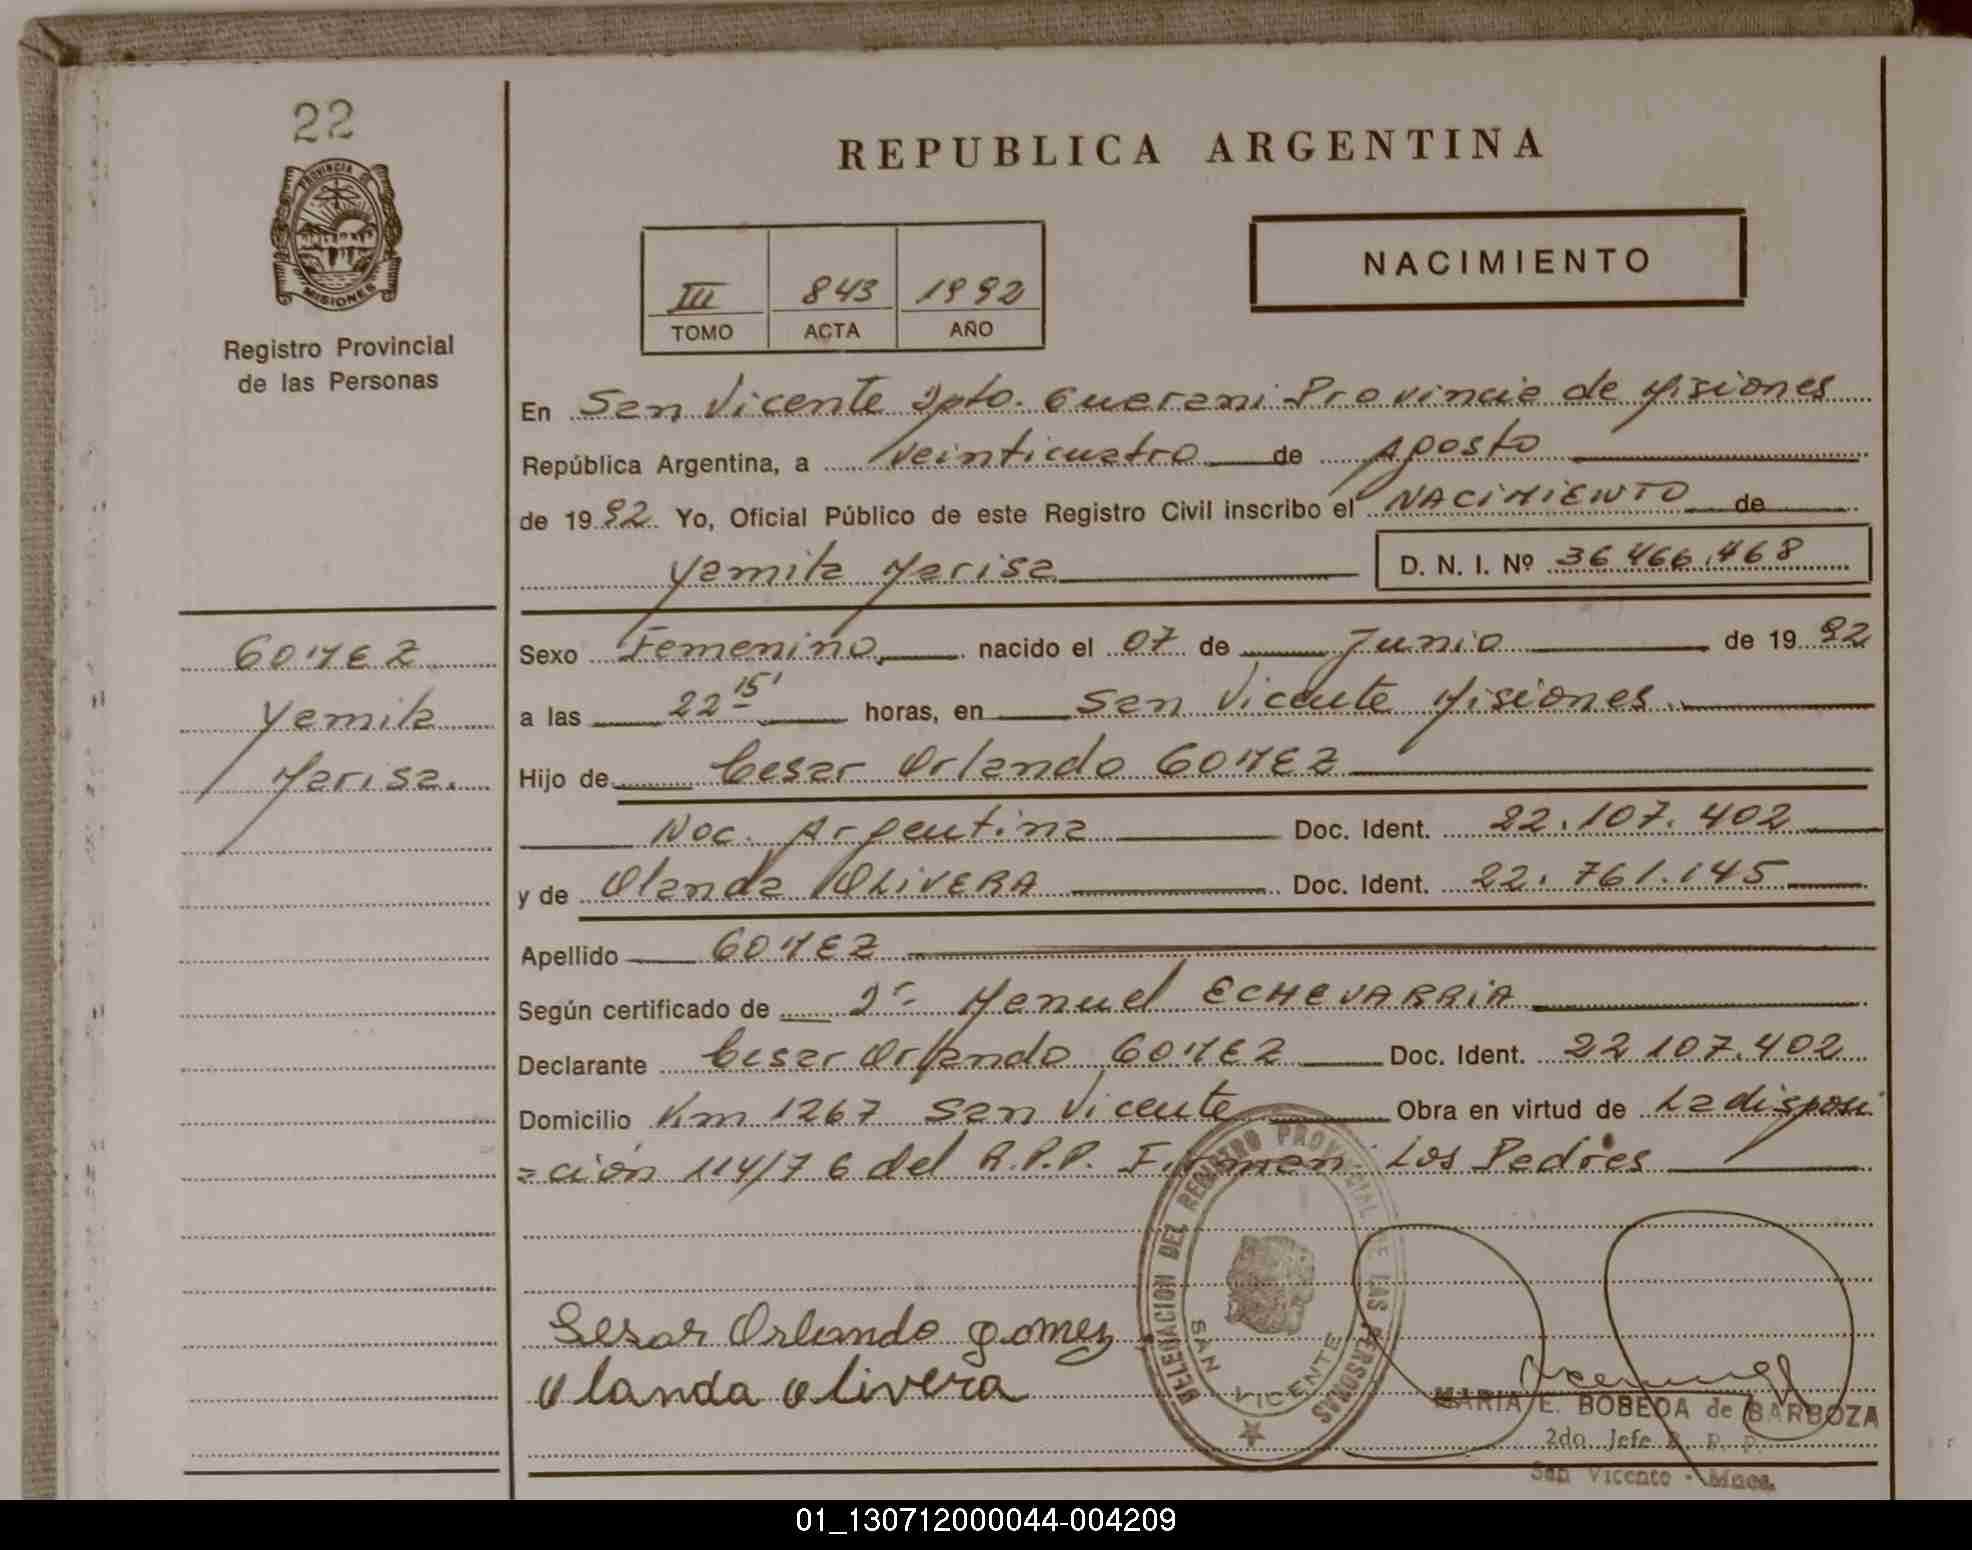 22
PROVINCIA DE
MISIONES
Registro Provincial
de las Personas
REPUBLICA ARGENTINA
NACIMIENTO
III 843 1992
TOMO ACTA AÑO
En San Vicente Dpto. Guarani Provincia de Misiones
República Argentina, a veinticuatro de Agosto
de 1992 Yo, Oficial Público de este Registro Civil inscribo el NACIMIENTO de
Yamila Marisa D. N. I. Nº 36.466.468
GOMEZ
Yamila
Marisa.
Sexo Femenino nacido el 07 de Junio de 1992
a las 22 15' horas, en San Vicente Misiones.
Hijo de Cesar Orlando GOMEZ
Nac. Argentina Doc. Ident. 22.107.402
y de Olanda OLIVERA Doc. Ident. 22.761.145
Apellido GOMEZ
Según certificado de Dr. Manuel ECHEVARRIA
Declarante Cesar Orlando GOMEZ Doc. Ident. 22 107.402
Domicilio Km 1267 San Vicente Obra en virtud de La disposi
=ción 114/76 del R.P.P. Firman: Los Padres
Sesar Orlando gomez
olanda olivera
DELEGACION DEL REGISTRO PROVINCIAL DE LAS PERSONAS
SAN VICENTE
MARIA E. BOBEDA de BARBOZA
2do Jefe R. P. P.
San Vicente - Mnes.
01_130712000044-004209